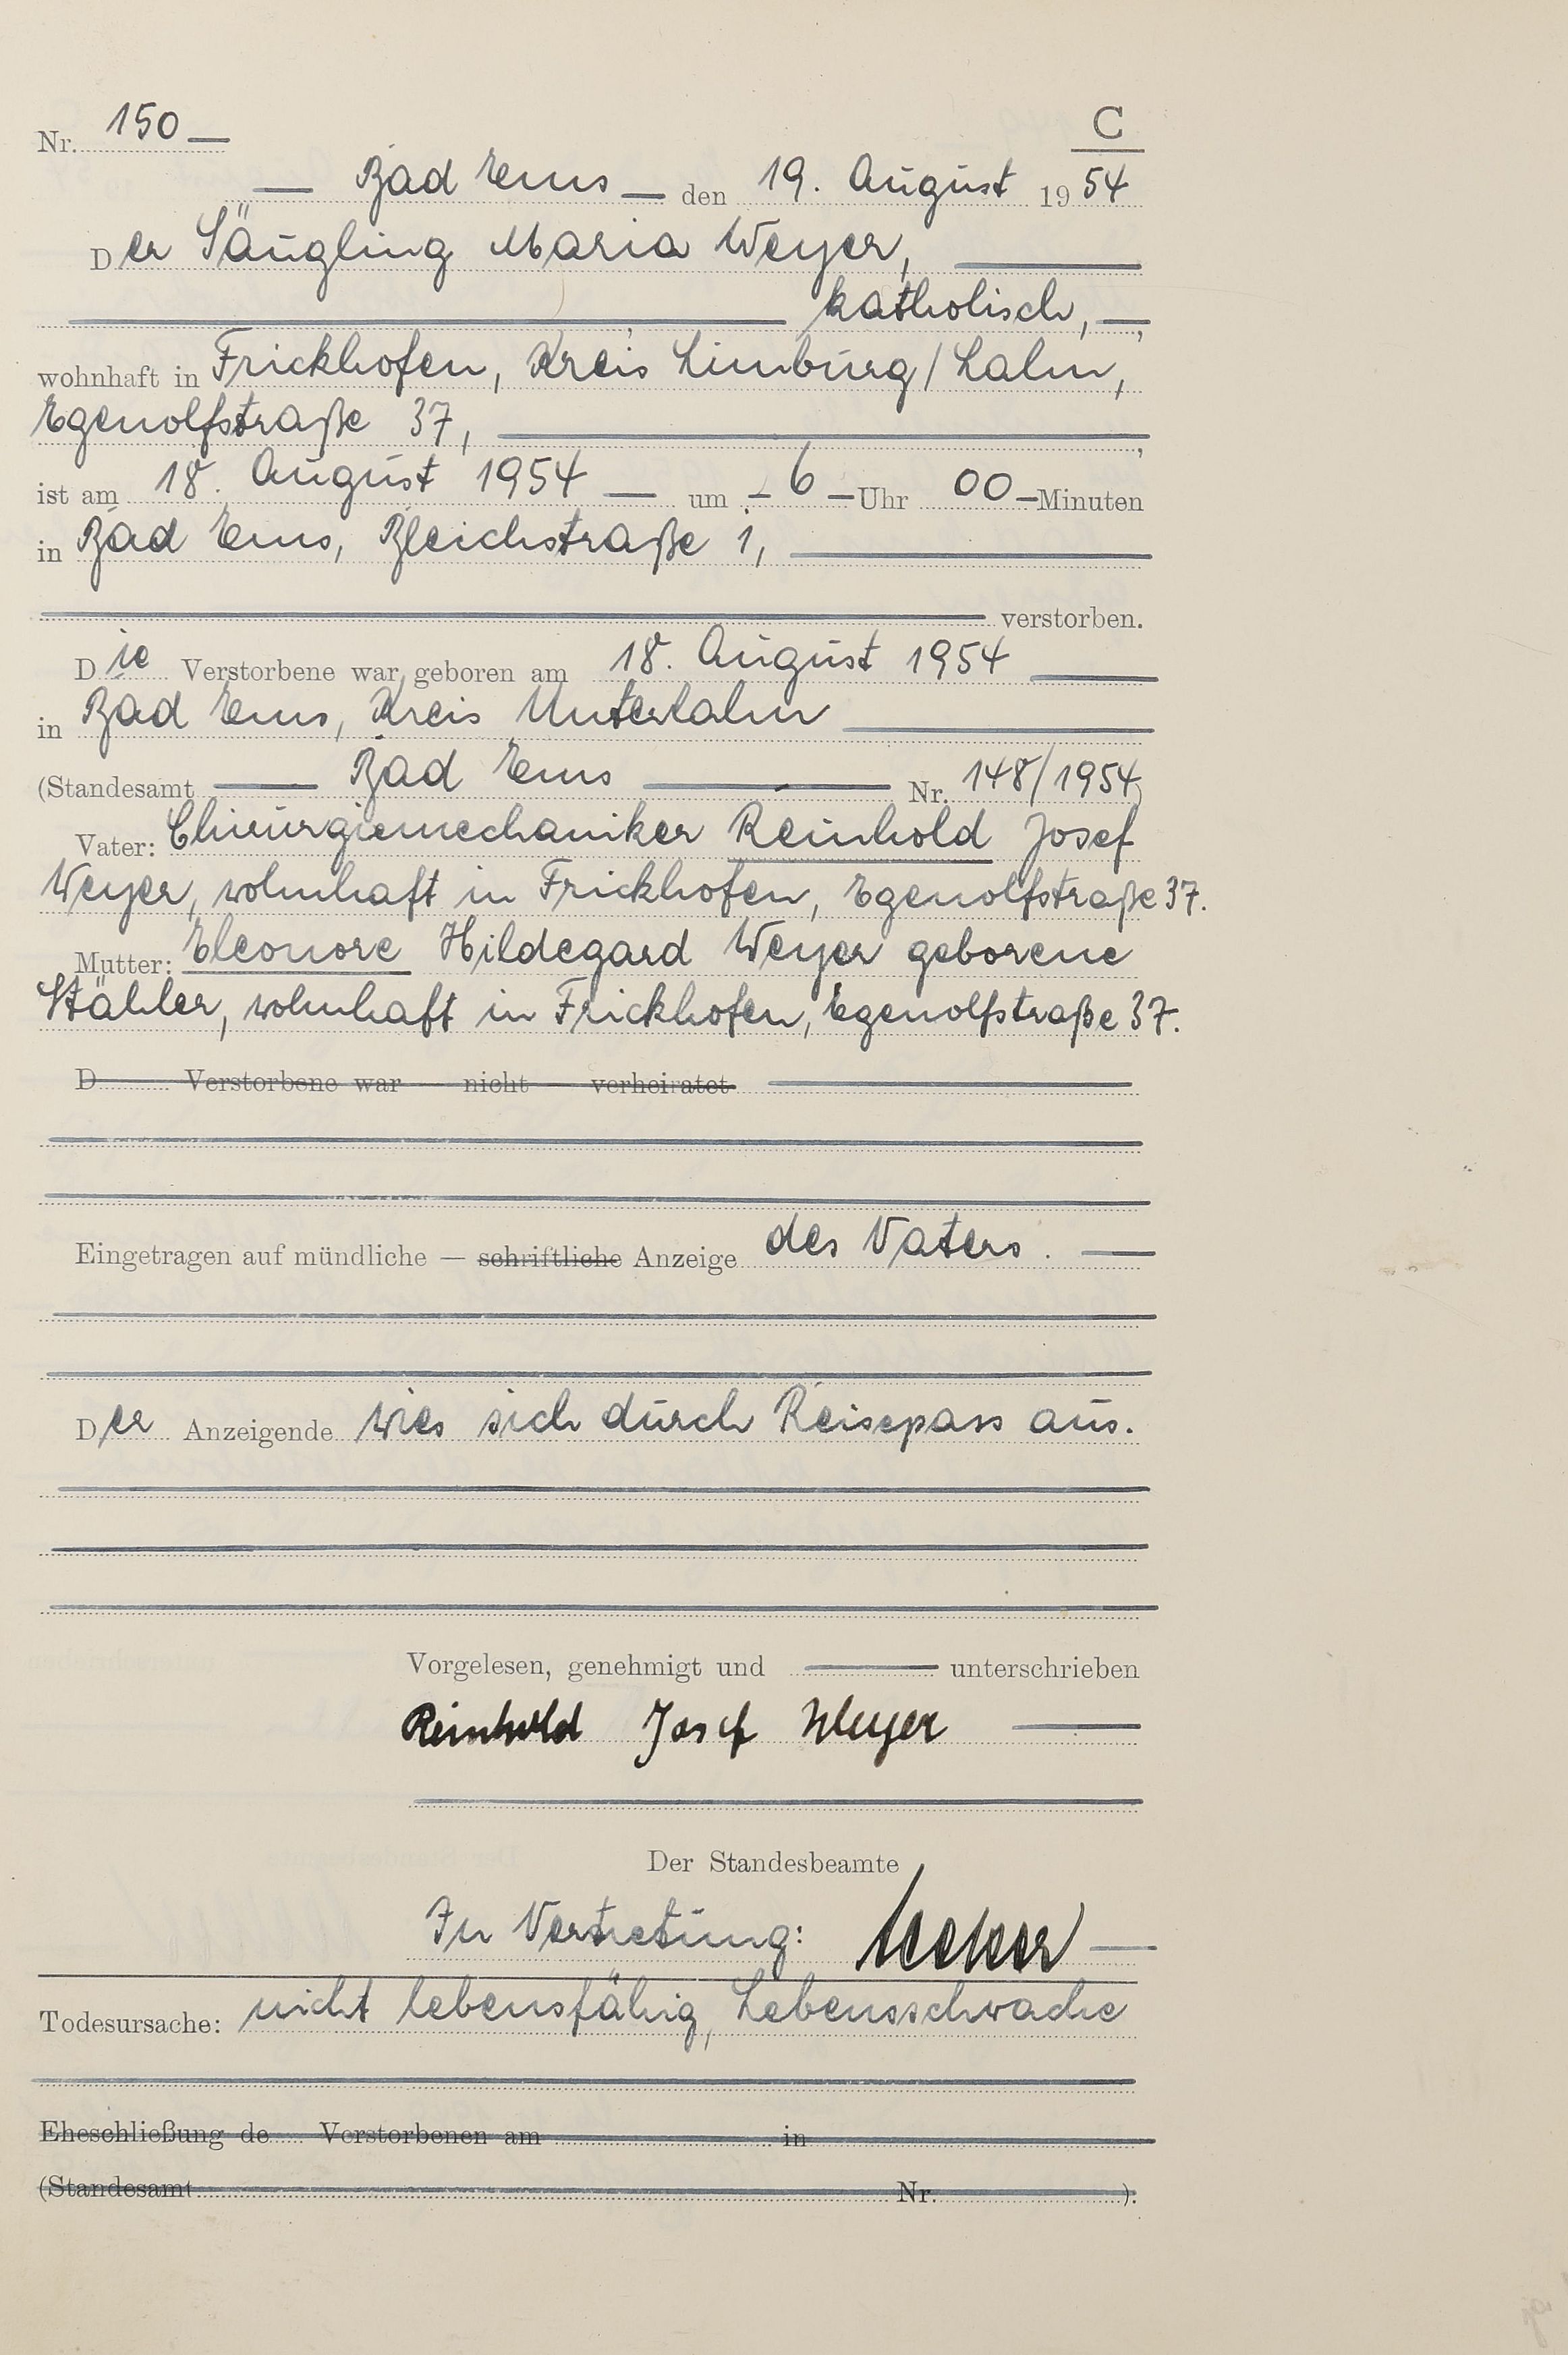 Nr. 150 — C
— Bad Ems — den 19. August 1954
Der Säugling Maria Weyer, —
— katholisch, —,
wohnhaft in Frickhofen, Kreis Limburg/Lahn,
Egenolfstraße 37, —,
ist am 18. August 1954 — um — 6 — Uhr 00 — Minuten
in Bad Ems, Bleichstraße 1, —
— verstorben.
Die Verstorbene war geboren am 18. August 1954 —
in Bad Ems, Kreis Unterlahn —
(Standesamt — Bad Ems — Nr. 148/1954)
Vater: Chirurgiemechaniker Reinhold Josef
Weyer, wohnhaft in Frickhofen, Egenolfstraße 37.
Mutter: Eleonore Hildegard Weyer geborene
Stähler, wohnhaft in Frickhofen, Egenolfstraße 37.
D Verstorbene war nicht verheiratet
Eingetragen auf mündliche — schriftliche Anzeige des Vaters. —
Der Anzeigende wies sich durch Reisepass aus.
Vorgelesen, genehmigt und — unterschrieben
Reinhold Josef Weyer —
Der Standesbeamte
In Vertretung:
Todesursache: nicht lebensfähig, Lebensschwache
Eheschließung de Verstorbenen am in
(Standesamt Nr. ).